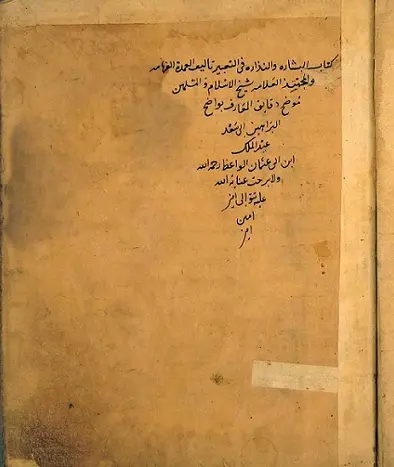 كتاب البشاره والنذاره في التعبير تاليف العمدة الفهامه
والمجتهد العلامه شيخ الاسلام والمسلمين
موضح دقايق المعارف بواضح
البراهين ابي سعد
عبد الملك
ابن ابي عثمان الواعظ رحمه الله
ولا برحت عناية الله
عليه تتوالى
امين